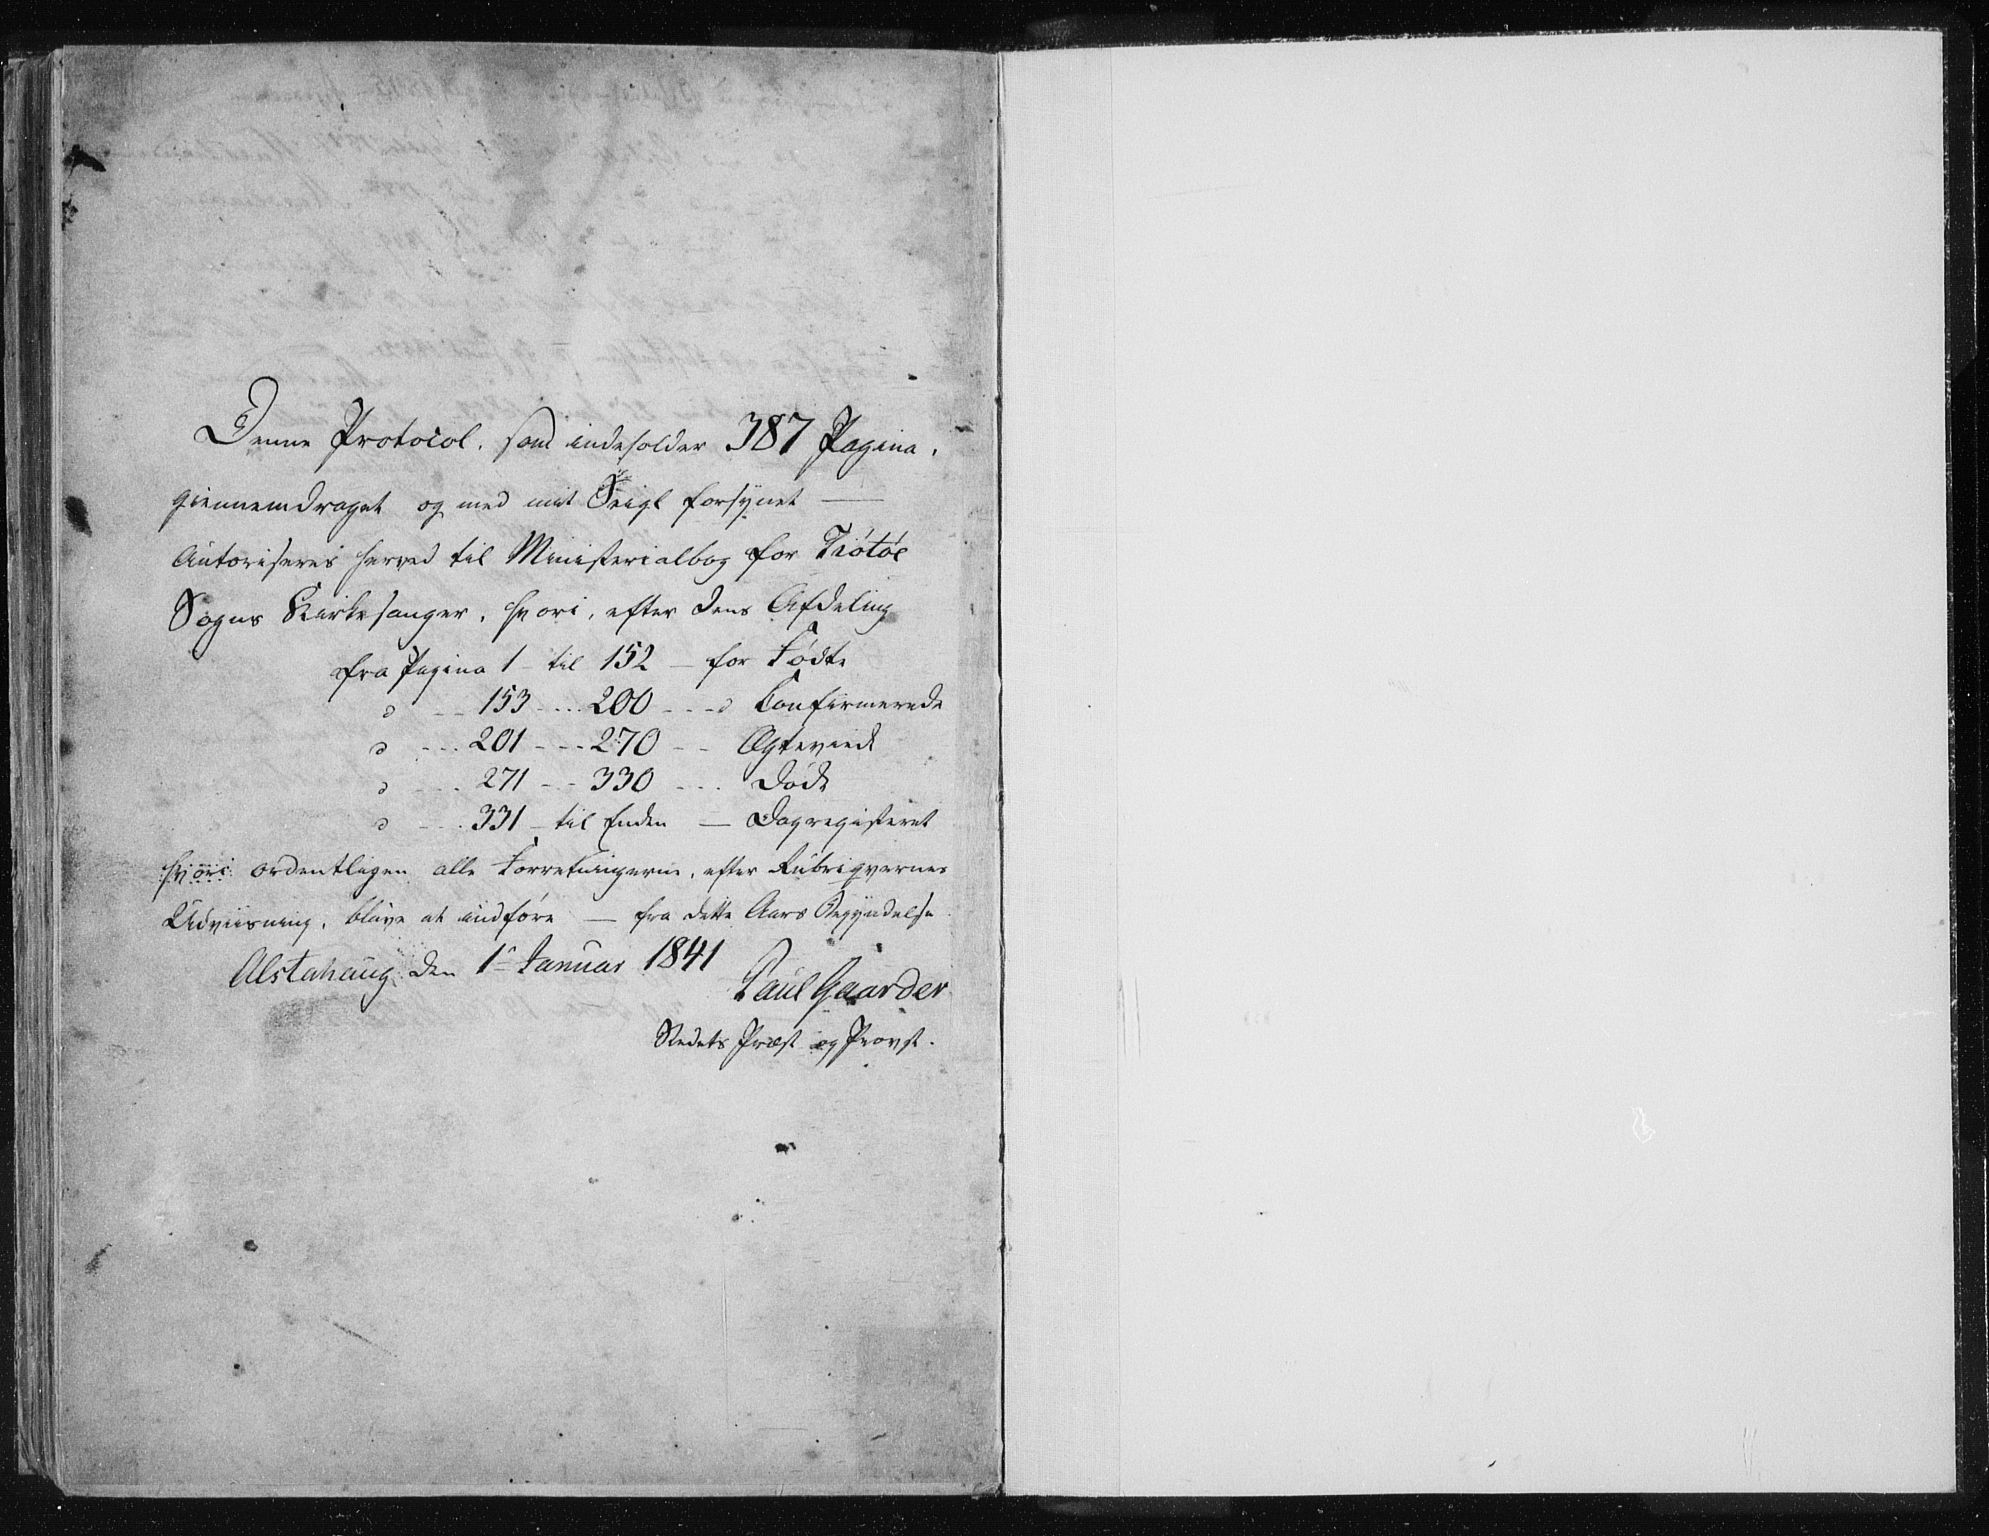 Denne Protocol, som indeholder 387 Pagina,
giennemdraget og med mit Seigl forsÿnet —
Autoriseres herved til Ministerialbog for Tiøtøe
Sogns Kirkesanger, hvori, efter dens Afdeling
fra Pagina 1 – til 152 – for Fødte
d – – 153 – – – 200 – – – d Confirmerede
d – – – 201 – – – 270 – – Ægteviede
d – – – 271 – – – 330 – – – Døde
d – – – 331 – til Enden — Dagregisteret
hvori ordentligen alle Forretningerne, efter Rubriqvernes
Udviisning, blive at indføre — fra dette Aars Begyndelse
Alstahaug den 1ste Januar 1841
Paul Gaarder
Stedets Præst og Provst.